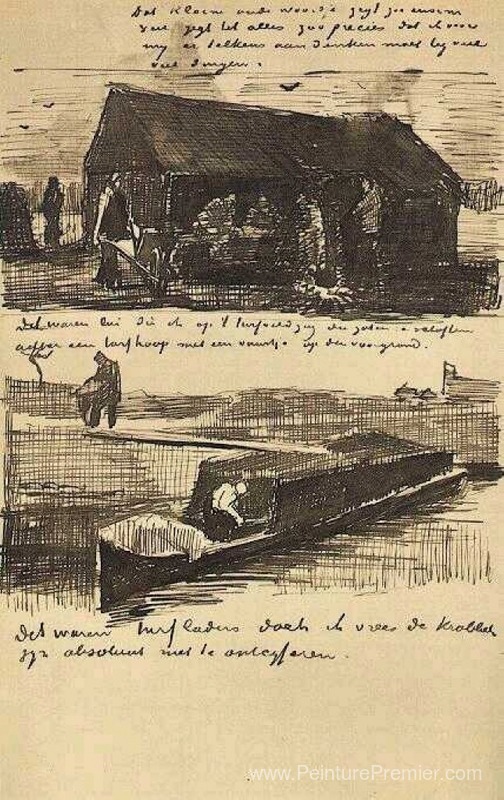 Dat kleine oude woordje zegt zoo enorm
veel zegt het alles zoo precies dat ik voor
my er telkens aan denken moet by veel
veel dingen.
Dat waren lui die ik op 't turfveld zag die zaten
achter een turfhoop met een vuurtje op den voorgrond.
Dat waren turfladers doch ik vrees de krabbels
zyn absoluut niet te ontcyferen.
www.PeinturePremier.com